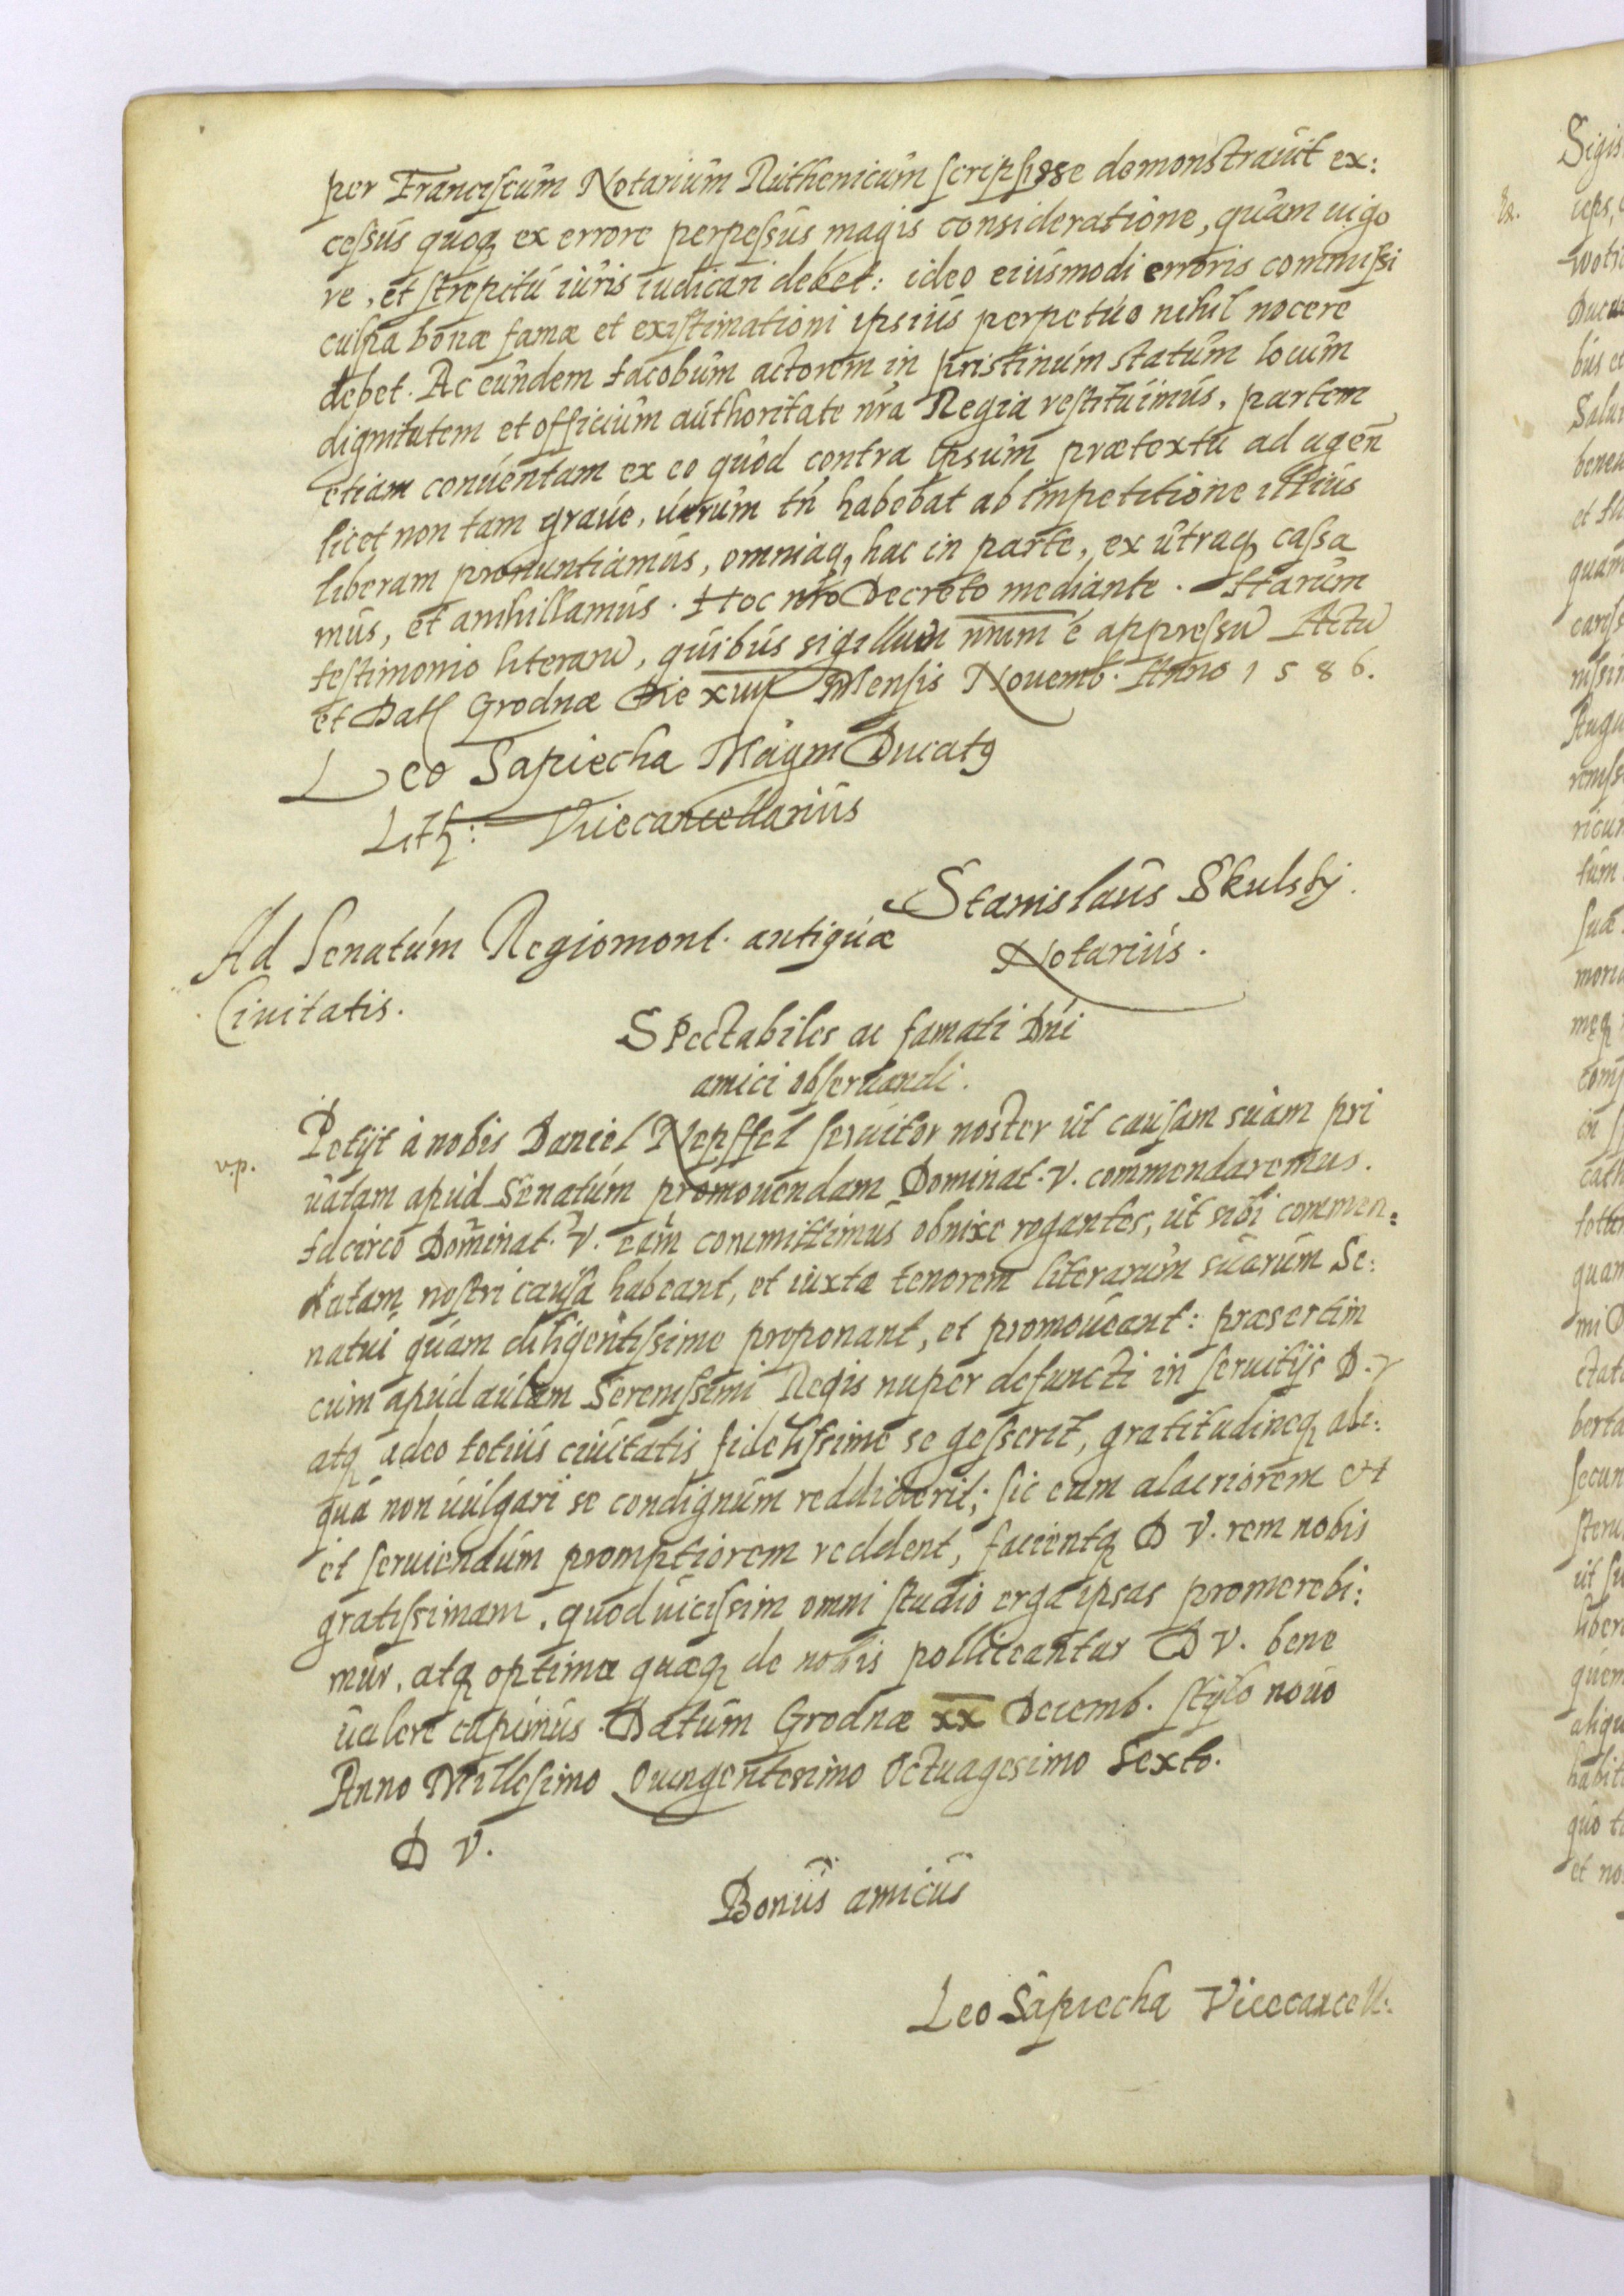 per Franciscum Notarium Ruthenicum scripsisse demonstrauit ex:
cessus quoq ex errore perpessus magis consideratione, quam uigo
re, et strepitu iuris iudicari debet: ideo eiusmodi erroris commissi
culpa bonæ famæ et existimationi ipsius perpetuo nihil nocere
debet. Ac eundem Iacobum actorem in pristinum statum locum
dignitatem et officium authoritate nra Regia restituimus, partem
etiam conuentam ex eo quod contra ipsum prætextu ad agen
licet non tam graue, uerum tn habebat ab impetitione illius
liberam pronuntiamus, omniaq, hac in parte, ex utraq cassa
mus, et anihillamus. Hoc nro Decreto mediante. Harum
testimonio literaru, quibus sigillum nrum e appressu Actu
et Dat Grodnæ Die xiiij Mensis Nouemb. Anno 1586.
Leo Sapiecha Magni Ducatq
Lith: Vicecancellarius
Stanislaus Skulsky.
Notarius.
Ad Senatum Regiomont. antiquæ
Ciuitatis.
Spectabiles ac famati Dni
amici obseruandi.
v.p.
Petijt a nobis Daniel Nepffel seruitor noster ut causam suam pri
uatam apud Senatum promouendam Dominat. V. commendaremus.
Idcirco Dominat. V. eam committimus obnixe rogantes, ut sibi commen=
datam nostri causa habeant, et iuxta tenorem literarum suarum Se:
natui quam diligentissime proponant, et promoueant: præsertim
cum apud aulam Serenissimi Regis nuper defuncti in seruitijs D. V
atq adeo totius ciuitatis fidelissime se gesserit, gratitudineq ali:
qua non uulgari se condignum reddiderit; sic eum alacriorem et
et seruiendum promptiorem reddent, facientq D V. rem nobis
gratissimam, quod uicissim omni studio erga ipsas promerebi:
mur, atq optima quæq de nobis polliceantur D V. bene
ualere cupimus. Datum Grodnæ xx Decemb. stylo nouo
Anno Millesimo Quingentesimo Octuagesimo Sexto.
D V.
Bonus amicus
Leo Sapiecha Vicecancell: